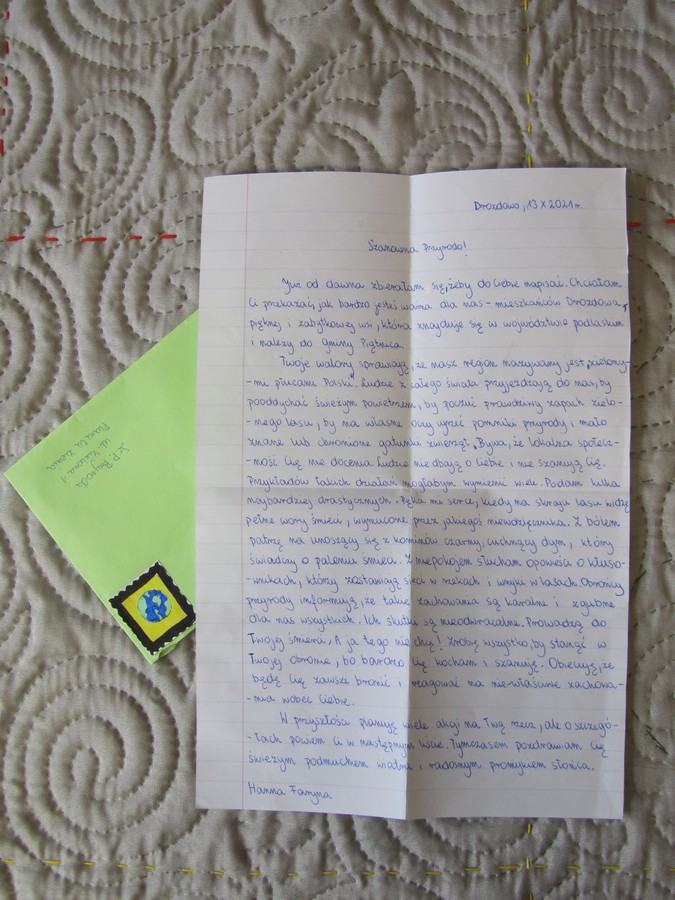 Drozdowo, 13 X 2021 r.
Szanowna Przyrodo!
Już od dawna zbierałam się, żeby do Ciebie napisać. Chciałam
Ci przekazać, jak bardzo jesteś ważna dla nas - mieszkańców Drozdowa,
pięknej i zabytkowej wsi, która znajduje się w województwie podlaskim
i należy do gminy Piątnica.
Twoje walory sprawiają, że nasz region nazywany jest „zielony-
-mi płucami Polski". Ludzie z całego świata przyjeżdżają do nas, by
pooddychać świeżym powietrzem, by poczuć prawdziwy zapach zielo-
-nego lasu, by na własne oczy ujrzeć pomniki przyrody i mało
znane lub chronione gatunki zwierząt. Bywa, że lokalna społecz-
-ność Cię nie docenia. Ludzie nie dbają o Ciebie i nie szanują Cię.
Przykładów takich działań mogłabym wymienić wiele. Podam kilka
najbardziej drastycznych. Pęka mi serce, kiedy na skraju lasu widzę
pełne wory śmieci, wyrzucone przez jakiegoś niewdzięcznika. Z bólem
patrzę na unoszący się z kominów czarny, cuchnący dym, który
świadczy o paleniu śmieci. Z niepokojem słucham opowieści o kłuso-
-wnikach, którzy zostawiają sieci w rzekach i wnyki w lasach. Obrońcy
przyrody informują, że takie zachowania są karalne i zgubne
dla nas wszystkich. Ich skutki są nieodwracalne. Prowadzą do
Twojej śmierci. A ja tego nie chcę! Zrobię wszystko, by stanąć w
Twojej obronie, bo bardzo Cię kocham i szanuję. Obiecuję, że
będę Cię zawsze bronić i reagować na nie-właściwe zachowa-
-nia wobec Ciebie.
W przyszłości planuję wiele akcji na Twą rzecz, ale o szczegó-
-łach powiem Ci w następnym liście. Tymczasem pozdrawiam Cię
świeżym podmuchem wiatru i radosnym promykiem słońca.
Hanna Faryna
Sz. P. Przyroda
ul. Zielona 1
Planeta Ziemia